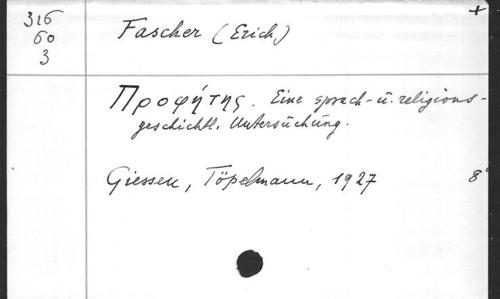 316
60
3
Fascher (Erich)
+
Προφήτης. Eine sprach- u. religions-
geschichtl. Untersuchung.
Giessen, Töpelmann, 1927 8°